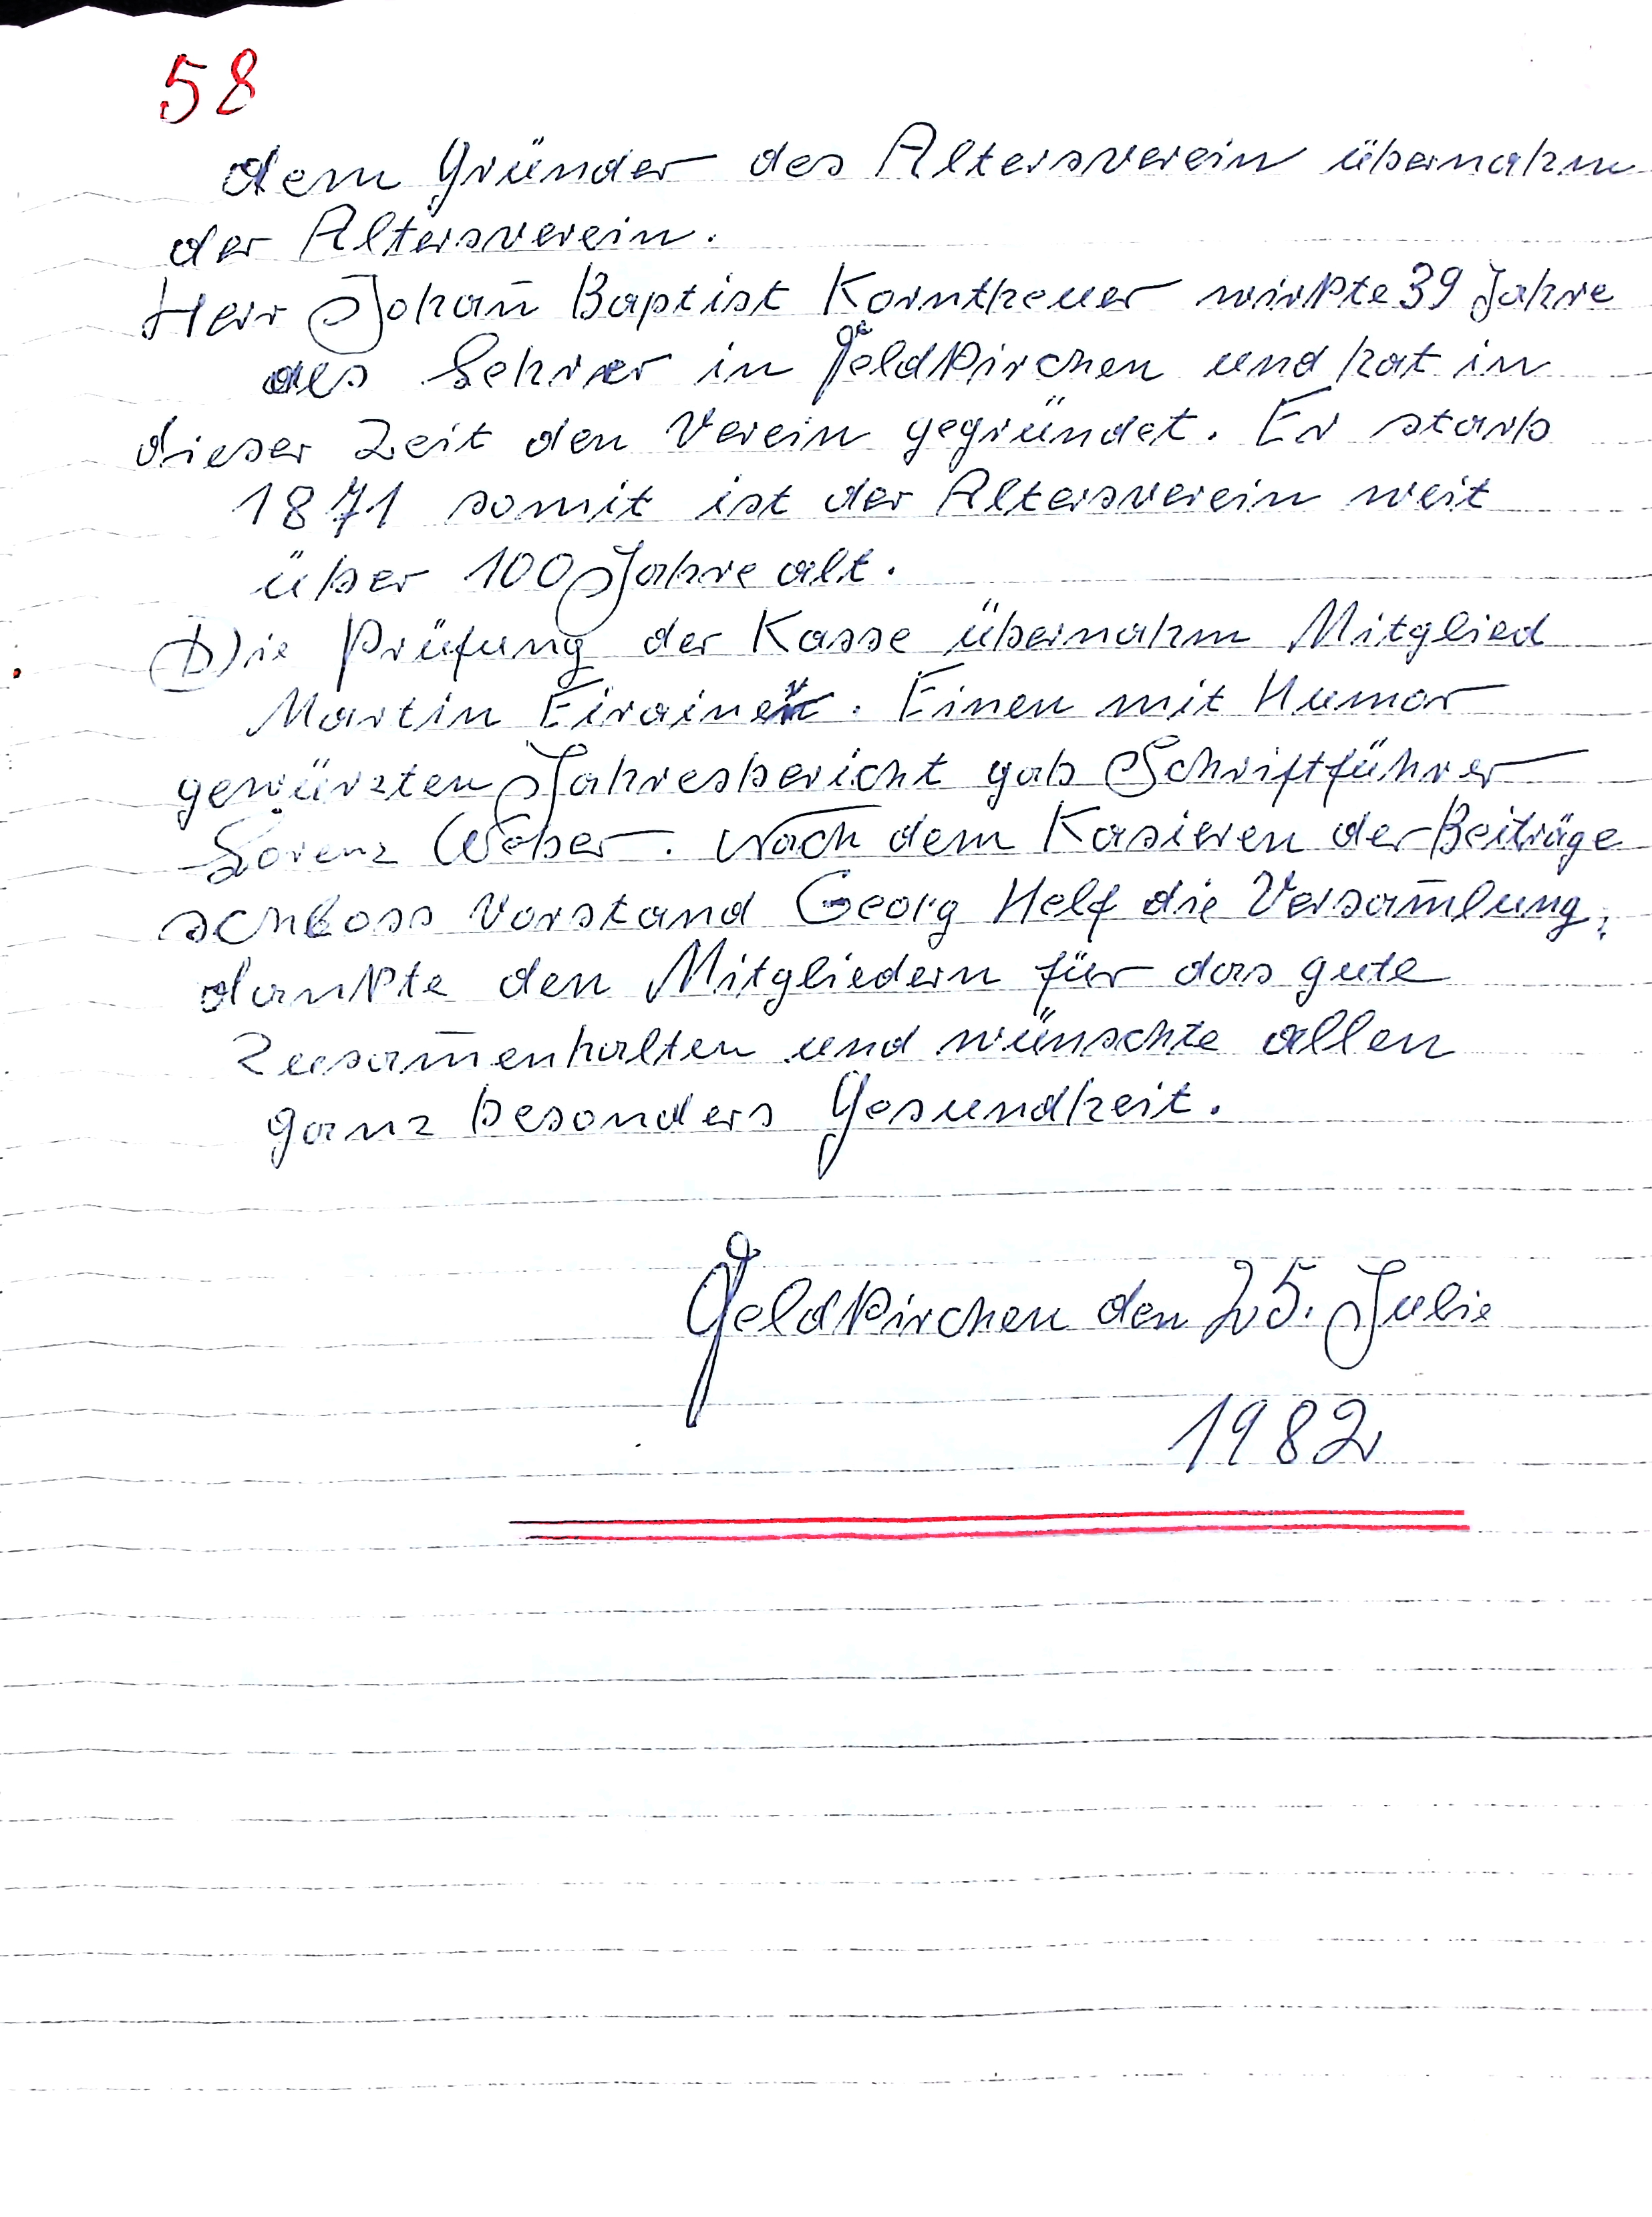 58
dem Gründer des Altersverein übernahm
der Altersverein.
Herr Johan̄ Baptist Korntheuer wirkte 39 Jahre
als Lehrer in Geldkirchen und hat in
dieser Zeit den Verein gegründet. Er starb
1871 somit ist der Altersverein weit
über 100 Jahre alt.
Die Prüfung der Kasse übernahm Mitglied
Martin Eirainer. Einen mit Humor
gewürzten Jahresbericht gab Schriftführer
Lorenz Weber. Nach dem Kasieren der Beiträge
schloss Vorstand Georg Helf die Versam̄lung,
dankte den Mitgliedern für das gute
Zusam̄enhalten und wünschte allen
ganz besonders Gesundheit.
Geldkirchen den 25. Julie
1982